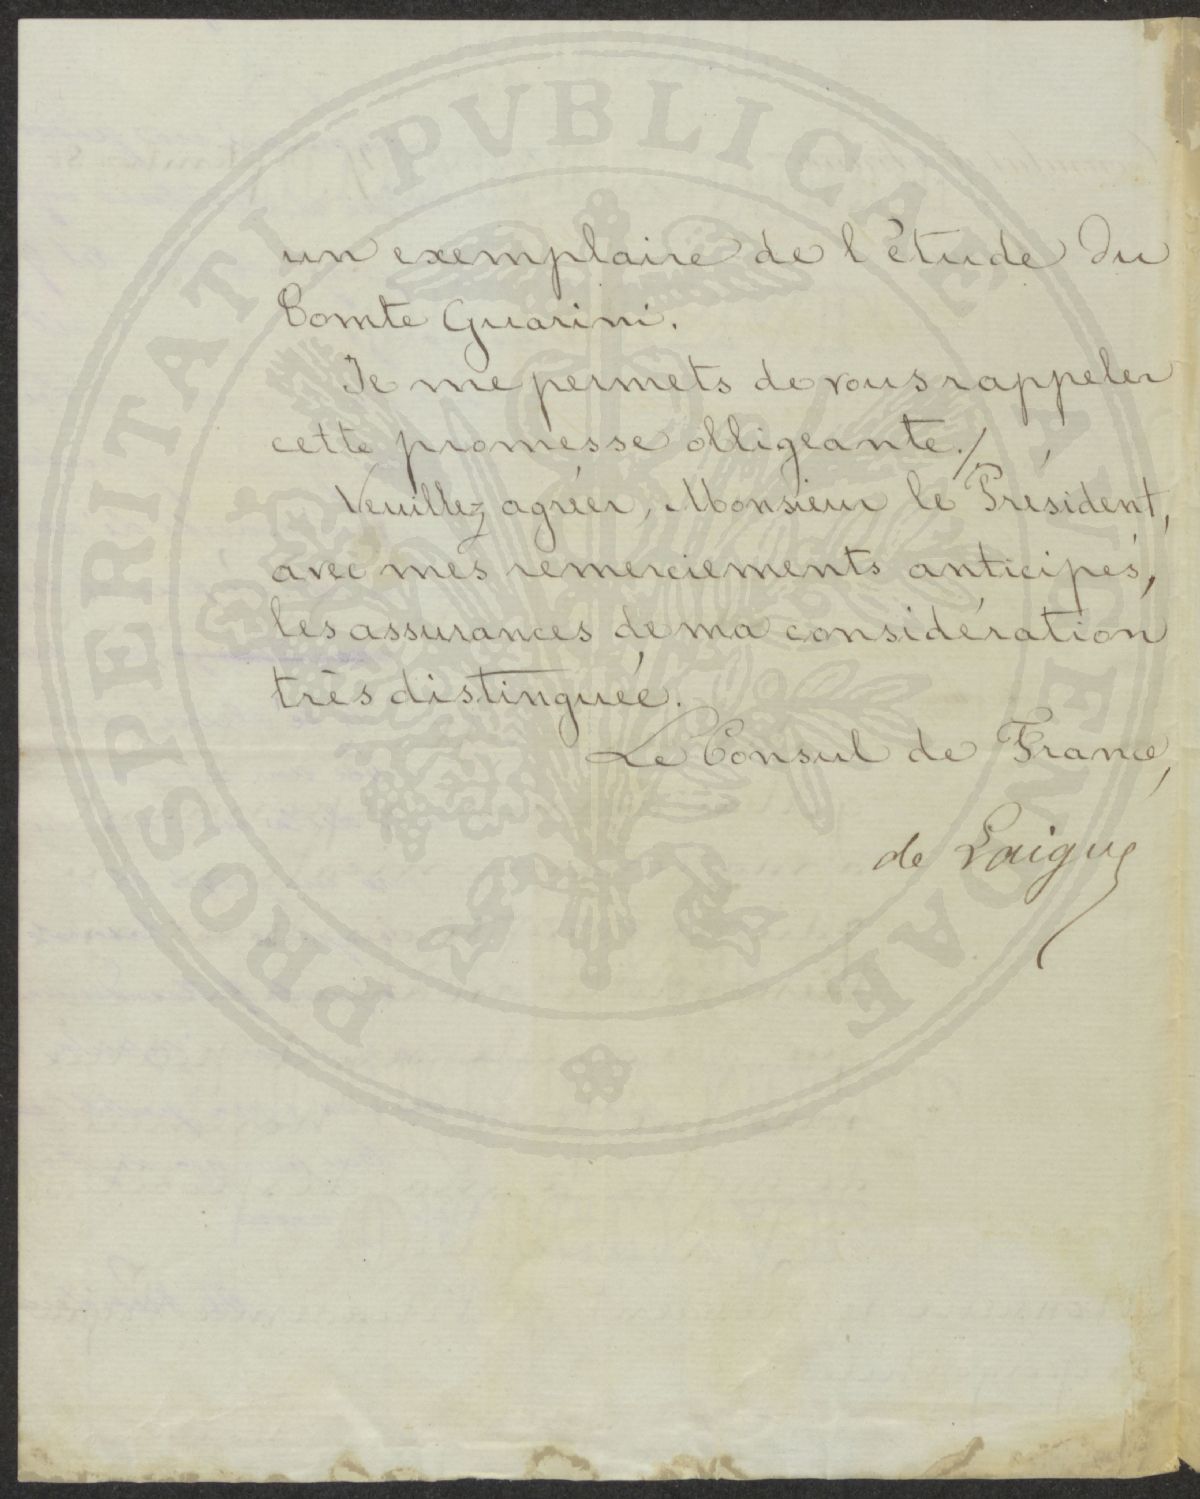 un exemplaire de l'étude du
Comte Guarini.
Je me permets de vous rappeler
cette promesse obligeante./
Veuillez agréer, Monsieur le Président,
avec mes remerciements anticipés,
les assurances de ma considération
très distinguée.
Le Consul de France,
de Laigue
PROSPERITATI PVBLICAE AVGENDAE